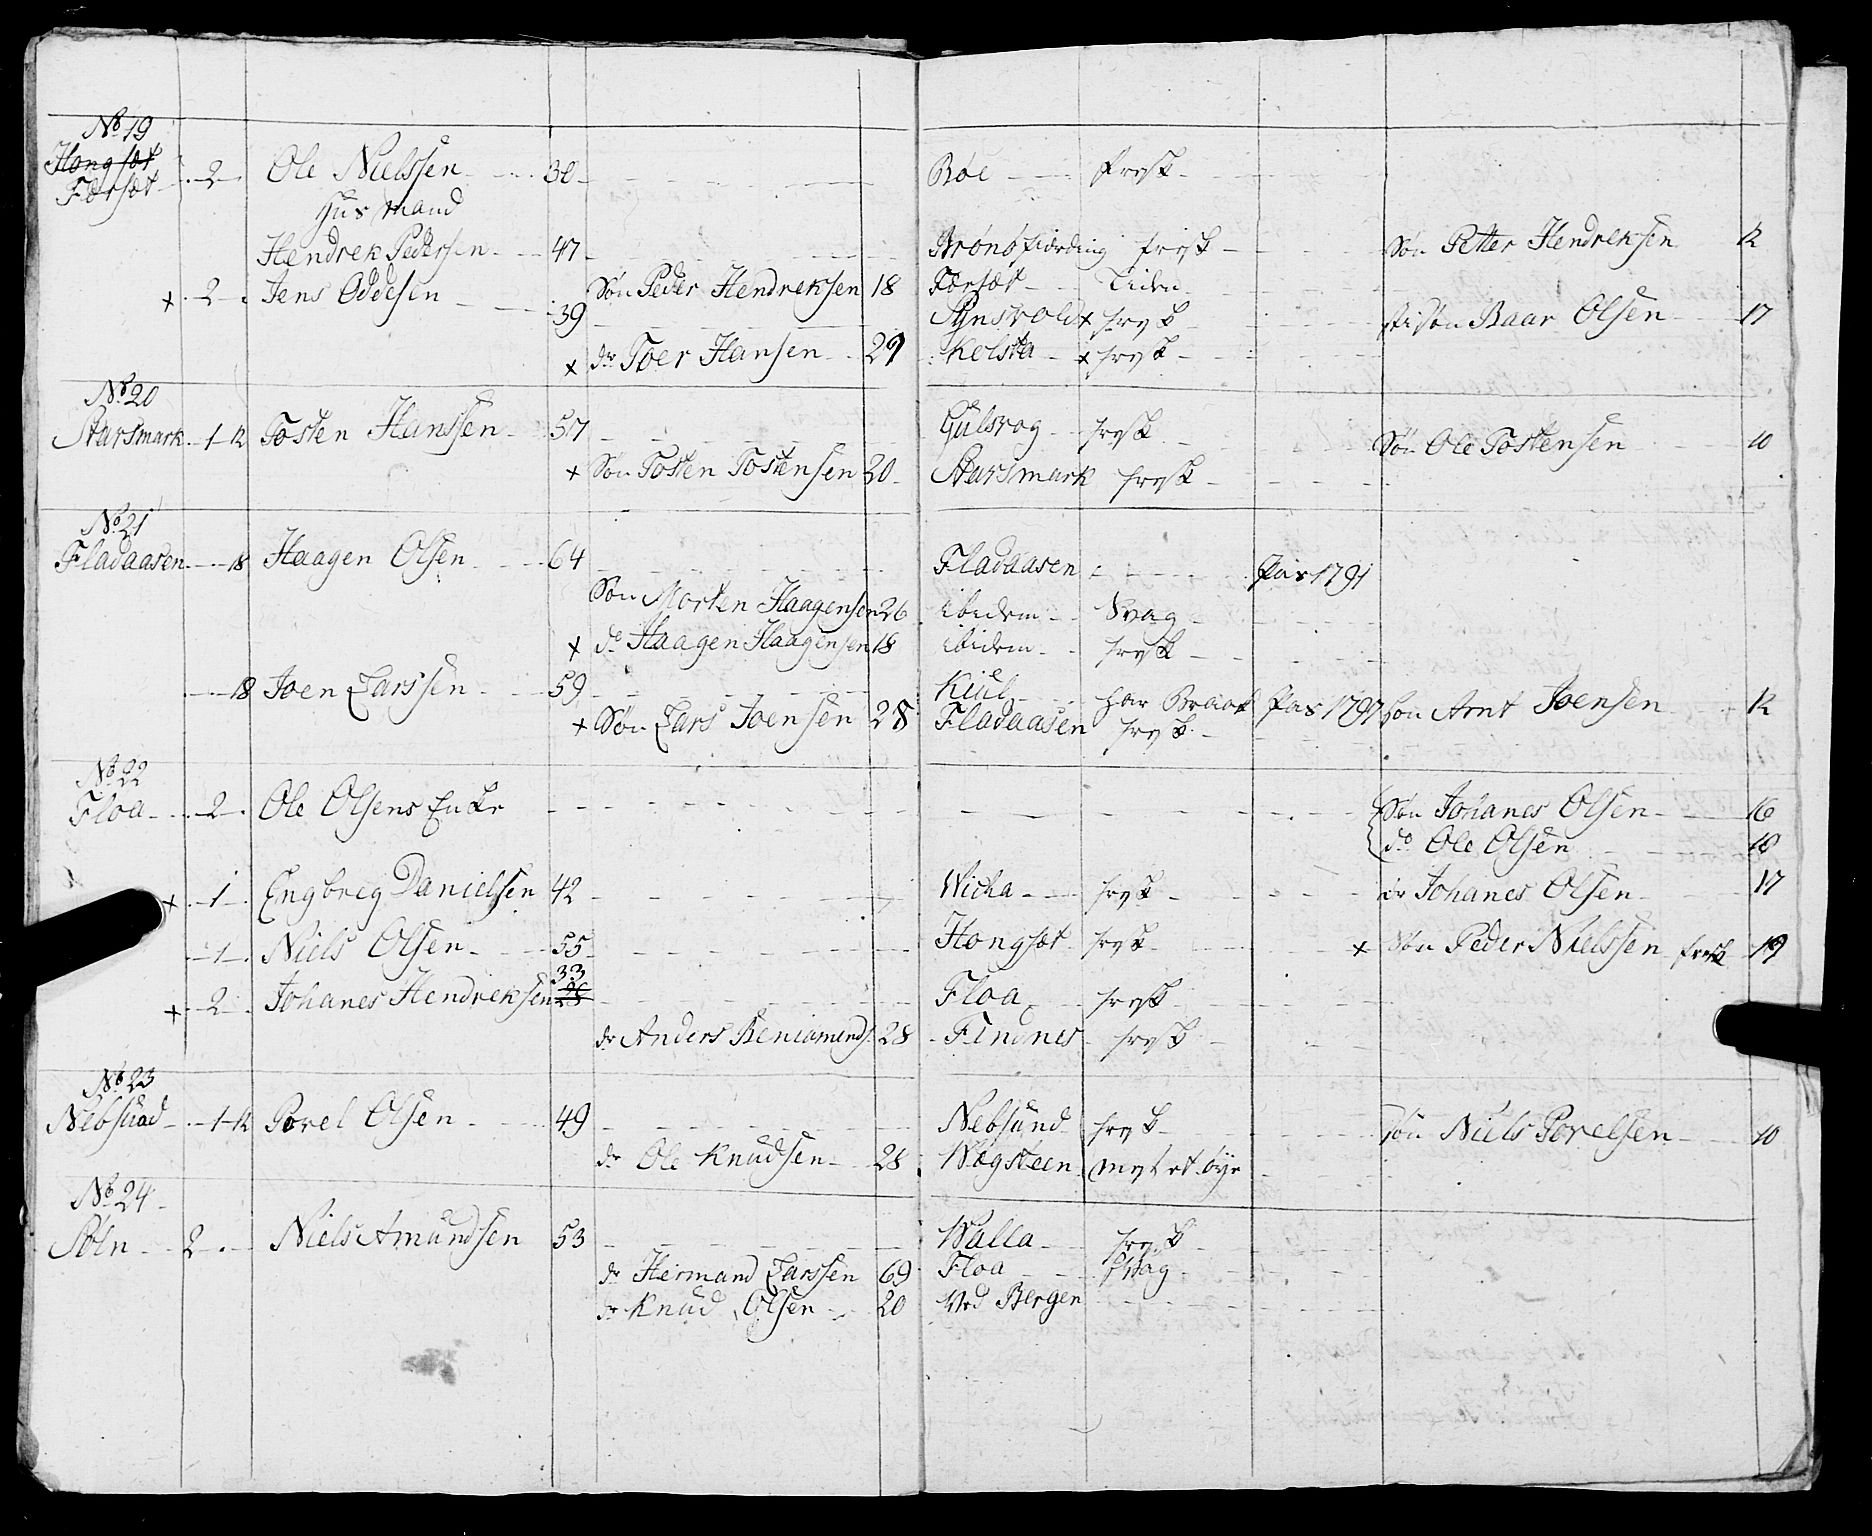 No 19
Hongsæt
Færsæt - 2 - Ole Nielssen - 30 - Bøe - frisk -
Husmand
Hendrek Pedersen - 47 - Brønøfiærding frisk - Søn Petter Hendreksen 12
Søn Peder Hendreksen 18 Færsæt - Liden -
x - 2 - Jens Oddesen - 39 - x frisk - stisøn Baar Olsen - 17
x dr Toer Hansen - 29 Kolsta - x frisk -
No 20
Starsmark - 1-12 Tosten Hanssen - 57 - Gulsvog - frisk - Søn Ole Tostensen 10
x Søn Tosten Tostensen 20 - Starsmark frisk -
No 21
Fladaasen - 18 Haagen Olsen - 64 - Fladaasen - Pas 1791
Søn Morten Haagensen 26 ibidem - Svag -
x do Haagen Haagensen 18 ibidem - frisk -
- 18 Joen Larssen - 59 - Kiil - har Braak Pas 1797 Søn Arnt Joensen - 12
x Søn Lars Joensen 28 Fladaasen frisk -
No 22
Floa - 2 - Ole Olsens Enke - Søn Johanes Olsen - 16
do Ole Olsen - 10
x - 1 - Engbrig Danielsen 42 - Wicha - frisk - dr Johanes Olsen - 17
- 1 - Niels Olsen - 55 - Hongsæt - frisk - x Søn Peder Nielssen frisk 19
33
x - 2 - Johanes Hendreksen 28 - Floa - frisk -
dr Anders Beniamends. 28 - Findnes - frisk -
No 23
Nebsund - 1-12 Povel Olsen - 49 - Nebsund frisk - Søn Niels Povelsen - 10
dr Ole Knudsen - 28 Wegsteen mist et øye
No 24
Søln - 2 - Niels Amundsen 53 - Walla - frisk -
dr Hermand Larssen 69 Floa - Svag -
dr Knud Olsen - 20 Ved Bergen -